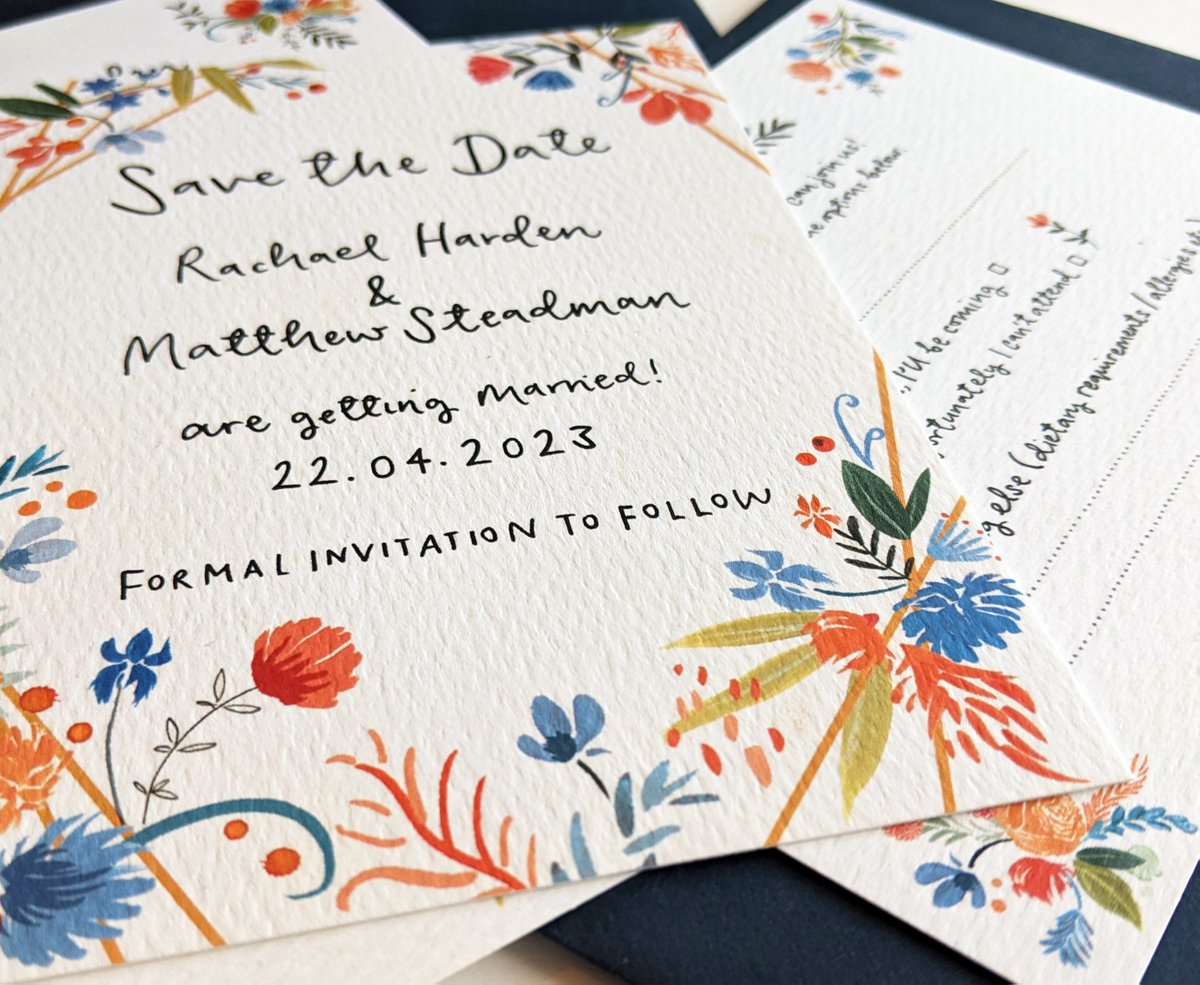 Our
Save the Date
Rachael Harden
&
Matthew Steadman
are getting married!
22.04.2023
FORMAL INVITATION TO FOLLOW
can join us!
options below.
I'll be coming
I can't attend
else (dietary requirements/allergies